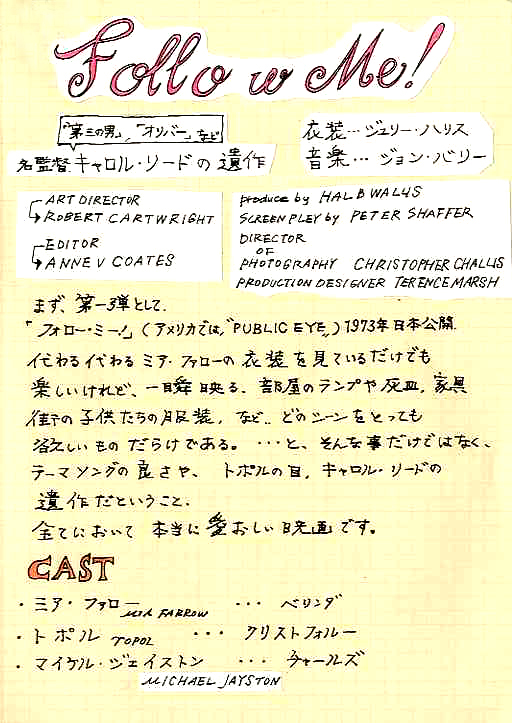 Follow Me!
「第三の男」,「オリバー」など
名監督キャロル・リードの遺作
衣装…ジュリー・ハリス
音楽…ジョン・バリー
ART DIRECTOR
ROBERT CARTWRIGHT
EDITOR
ANNE V COATES
produce by HAL B WALLIS
SCREEN PLEY by PETER SHAFFER
DIRECTOR
OF
PHOTOGRAPHY CHRISTOPHER CHALLIS
PRODUCTION DESIGNER TERENCE MARSH
まず、第一弾として.
「フォロー・ミー!」(アメリカでは"PUBLIC EYE")1973年日本公開.
代わる代わるミア・ファローの衣装を見ているだけでも
楽しいけれど、一瞬映る、部屋のランプや灰皿,家具
街の子供たちの服装,など..どのシーンをとっても
欲しいものだらけである。…と、そんな事だけではなく、
テーマソングの良さや、トポルの目,キャロル・リードの
遺作だということ、
全てにおいて 本当に愛おしい映画です。
CAST
・ミア・ファロー MIA FARROW … ベリンダ
・トポル TOPOL … クリストフォルー
・マイケル・ジェイストン … チャールズ
MICHAEL JAYSTON